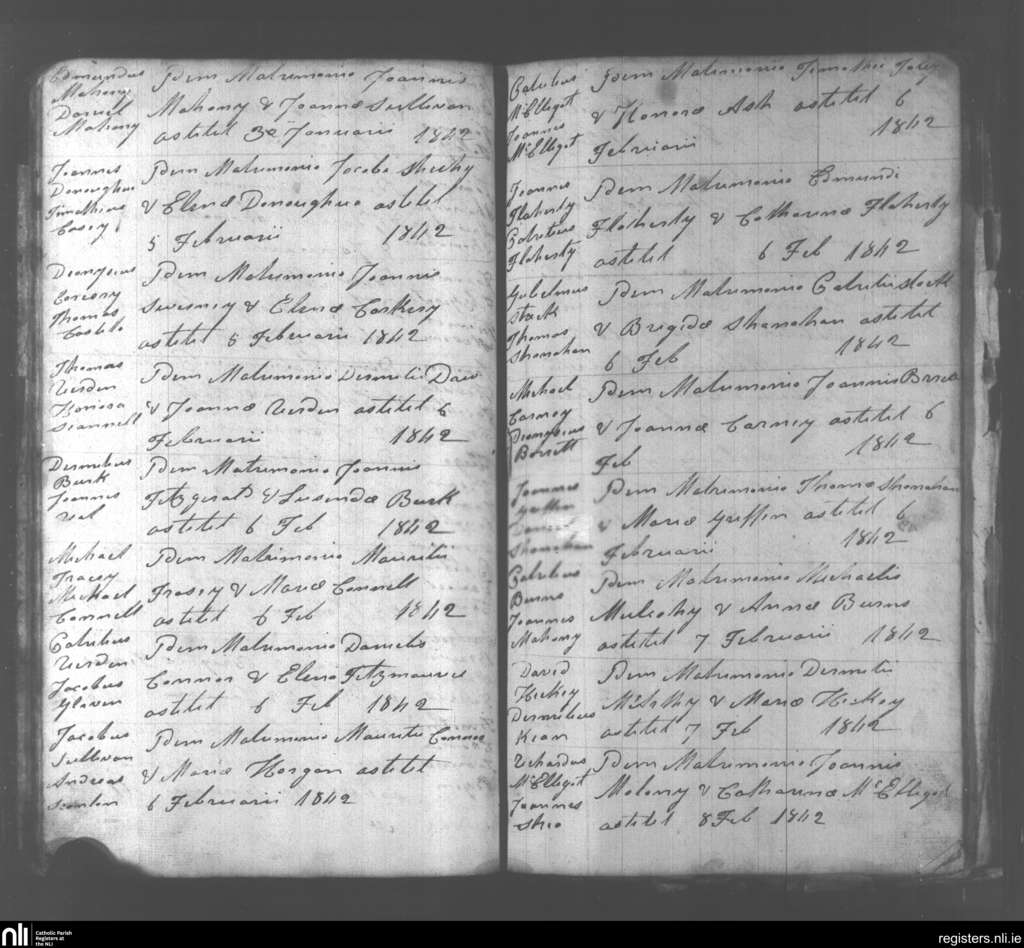 Edmundus
Mahony
Daniel
Mahony
Idem Matrimonio Joannis
Mahony & Joannæ Sullivan
astitit 3a Januarii 1842
Joannes
Donoughue
Timothius
Casey
Idem Matrimonio Jacobi Sheehy
& Elenæ Donoughue astitit
5 Februarii 1842
Dionysius
Corcory
Thomas
Costelo
Idem Matrimonio Joannis
Sweeney & Elenæ Corkery
astitit 5 Februarii 1842
Thomas
Verdon
Honora
Scannell
Idem Matrimonio Dermitii Daw
& Joannæ Verdon astitit 6
Februarii 1842
Dermitius
Burk
Joannes
Idem Matrimonio Joannis
Fitzgerald & Lusindæ Burk
astitit 6 Feb 1842
Michael
Tracey
Michael
Connell
Idem Matrimonio Mauritii
Tracey & Mariæ Connell
astitit 6 Feb 1842
Patritius
Verdon
Jacobus
Glavin
Idem Matrimonio Danielis
Connor & Elenæ Fitzmaurice
astitit 6 Feb 1842
Jacobus
Sullivan
Andreas
Scanlon
Idem Matrimonio Mauritii Connor
& Mariæ Horgan astitit
6 Februarii 1842
Patritius
McElligot
Joannes
McElligot
Idem Matrimonio Timothii Foley
& Honoræ Ash astitit 6
Februarii 1842
Joannes
Flaherty
Patritius
Flaherty
Idem Matrimonio Edmundi
Flaherty & Catharinæ Flaherty
astitit 6 Feb 1842
Gulielmus
Stack
Thomas
Shanahan
Idem Matrimonio Patritii Stack
& Brigidæ Shanahan astitit
6 Feb 1842
Michael
Carney
Dionysius
Idem Matrimonio Joannis
& Joannæ Carney astitit 6
Feb 1842
Joannes
Griffin
Daniel
Shanahan
Idem Matrimonio Thomæ Shanahan
& Mariæ Griffin astitit 6
Februarii 1842
Patritius
Burns
Joannes
Mahony
Idem Matrimonio Michaelis
Mulcahy & Annæ Burns
astitit 7 Februarii 1842
David
Hickey
Dermitius
Kean
Idem Matrimonio Dermitii
& Mariæ Hickey
astitit 7 Feb 1842
Richardus
McElligot
Joannes
Shea
Idem Matrimonio Joannis
Molony & Catharinæ McElligot
astitit 8 Feb 1842
nli
Catholic Parish
Registers at
the NLI
registers.nli.ie